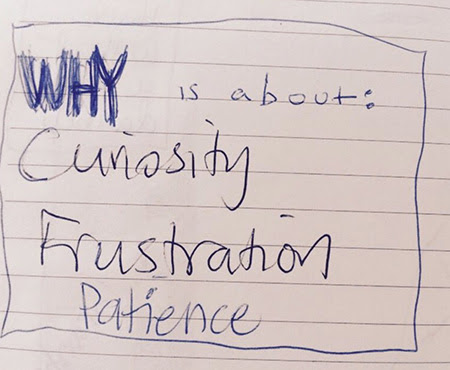 WHY is about:
Curiosity
Frustration
Patience